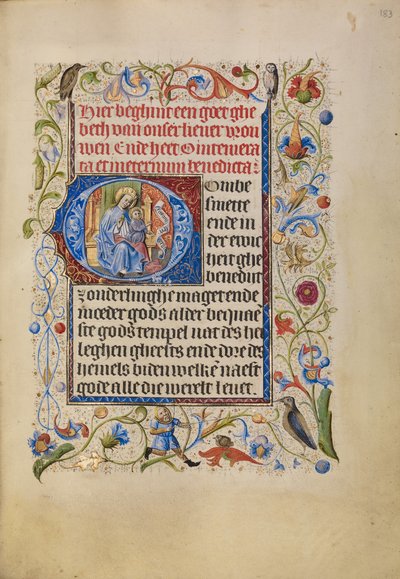 183
Hier beghint een goet ghe
beth van onser liever vrou
wen Ende heet O intemera
ta et in eternum benedicta:
Ombe
smette
ende in
der ewic
heit ghe
benedut
zonderlinghe maget ende
moeder gods alder bequaē
ste gods tempel nat des hei
leghen gheests ende dore des
hemels biden welkē naest
gode alle die werelt levet.